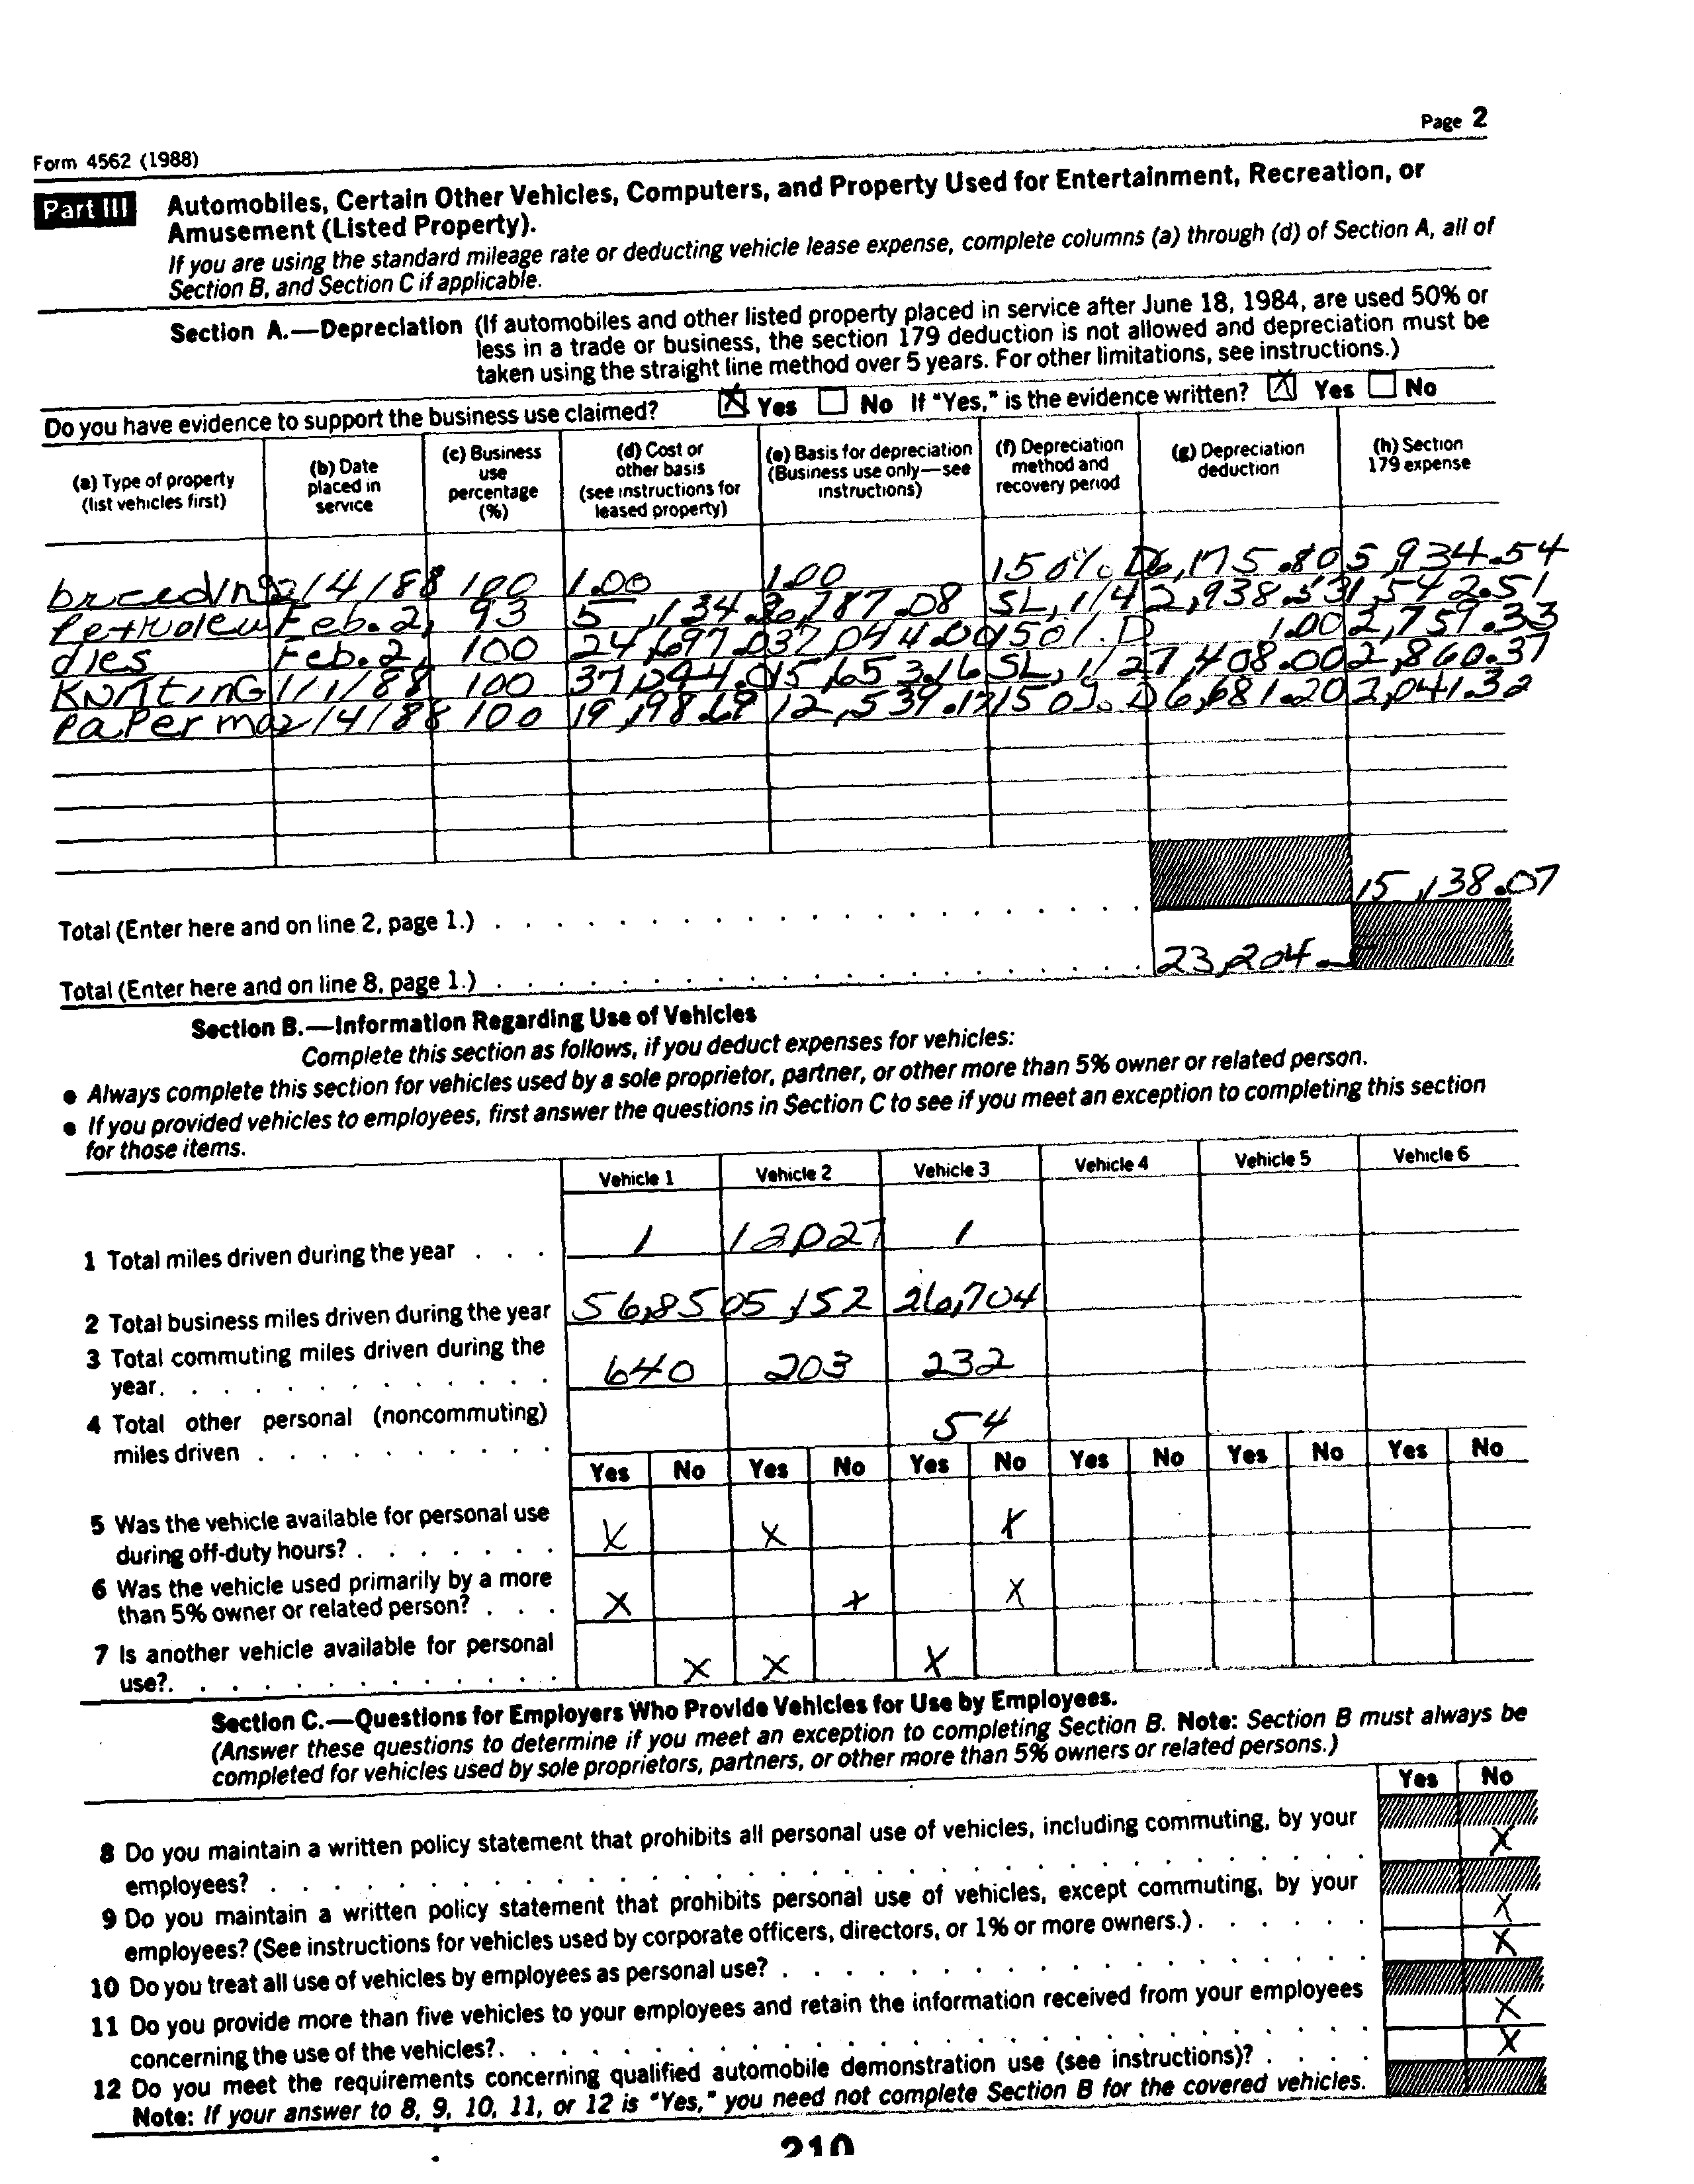 Page 2
Form 4562 (1988)
Part III Automobiles, Certain Other Vehicles, Computers, and Property Used for Entertainment, Recreation, or
Amusement (Listed Property).
If you are using the standard mileage rate or deducting vehicle lease expense, complete columns (a) through (d) of Section A, all of
Section B, and Section C if applicable.
Section A.—Depreciation (If automobiles and other listed property placed in service after June 18, 1984, are used 50% or
less in a trade or business, the section 179 deduction is not allowed and depreciation must be
taken using the straight line method over 5 years. For other limitations, see instructions.)
Do you have evidence to support the business use claimed? X Yes No If "Yes," is the evidence written? X Yes No
(a) Type of property (list vehicles first) (b) Date placed in service (c) Business use percentage (%) (d) Cost or other basis (see instructions for leased property) (e) Basis for depreciation (Business use only—see instructions) (f) Depreciation method and recovery period (g) Depreciation deduction (h) Section 179 expense
breeding 2/4/88 100 1.00 1.00 150% D 6,175.80 5,934.54
Petroleu Feb. 2, 93 5,134. 787.08 SL, 1/4 2,938.53 1,542.51
dies Feb. 2, 100 24,697.03 7,044.00 150%. D 1.00 2,759.33
KNitiNG 1/1/88 100 37,294.0 15,653.16 SL, 1/2 7,408.00 2,860.37
PaPer ma 2/4/88 100 19,198.69 12,539.17 150%. D 6,681.20 2,041.32
15,138.07
Total (Enter here and on line 2, page 1.)
Total (Enter here and on line 8, page 1.) 23,204.
Section B.—Information Regarding Use of Vehicles
Complete this section as follows, if you deduct expenses for vehicles:
● Always complete this section for vehicles used by a sole proprietor, partner, or other more than 5% owner or related person.
● If you provided vehicles to employees, first answer the questions in Section C to see if you meet an exception to completing this section
for those items.
Vehicle 1 Vehicle 2 Vehicle 3 Vehicle 4 Vehicle 5 Vehicle 6
1 Total miles driven during the year . . . 1 12,027 1
2 Total business miles driven during the year 56,850 5,152 26,704
3 Total commuting miles driven during the
year. 640 203 232
4 Total other personal (noncommuting)
miles driven 54
Yes No Yes No Yes No Yes No Yes No Yes No
5 Was the vehicle available for personal use
during off-duty hours? X X X
6 Was the vehicle used primarily by a more
than 5% owner or related person? X X X
7 Is another vehicle available for personal
use? X X X
Section C.—Questions for Employers Who Provide Vehicles for Use by Employees.
(Answer these questions to determine if you meet an exception to completing Section B. Note: Section B must always be
completed for vehicles used by sole proprietors, partners, or other more than 5% owners or related persons.)
Yes No
8 Do you maintain a written policy statement that prohibits all personal use of vehicles, including commuting, by your
employees? X
9 Do you maintain a written policy statement that prohibits personal use of vehicles, except commuting, by your
employees? (See instructions for vehicles used by corporate officers, directors, or 1% or more owners.) X
10 Do you treat all use of vehicles by employees as personal use? X
11 Do you provide more than five vehicles to your employees and retain the information received from your employees
concerning the use of the vehicles? X
12 Do you meet the requirements concerning qualified automobile demonstration use (see instructions)? X
Note: If your answer to 8, 9, 10, 11, or 12 is "Yes," you need not complete Section B for the covered vehicles.
210